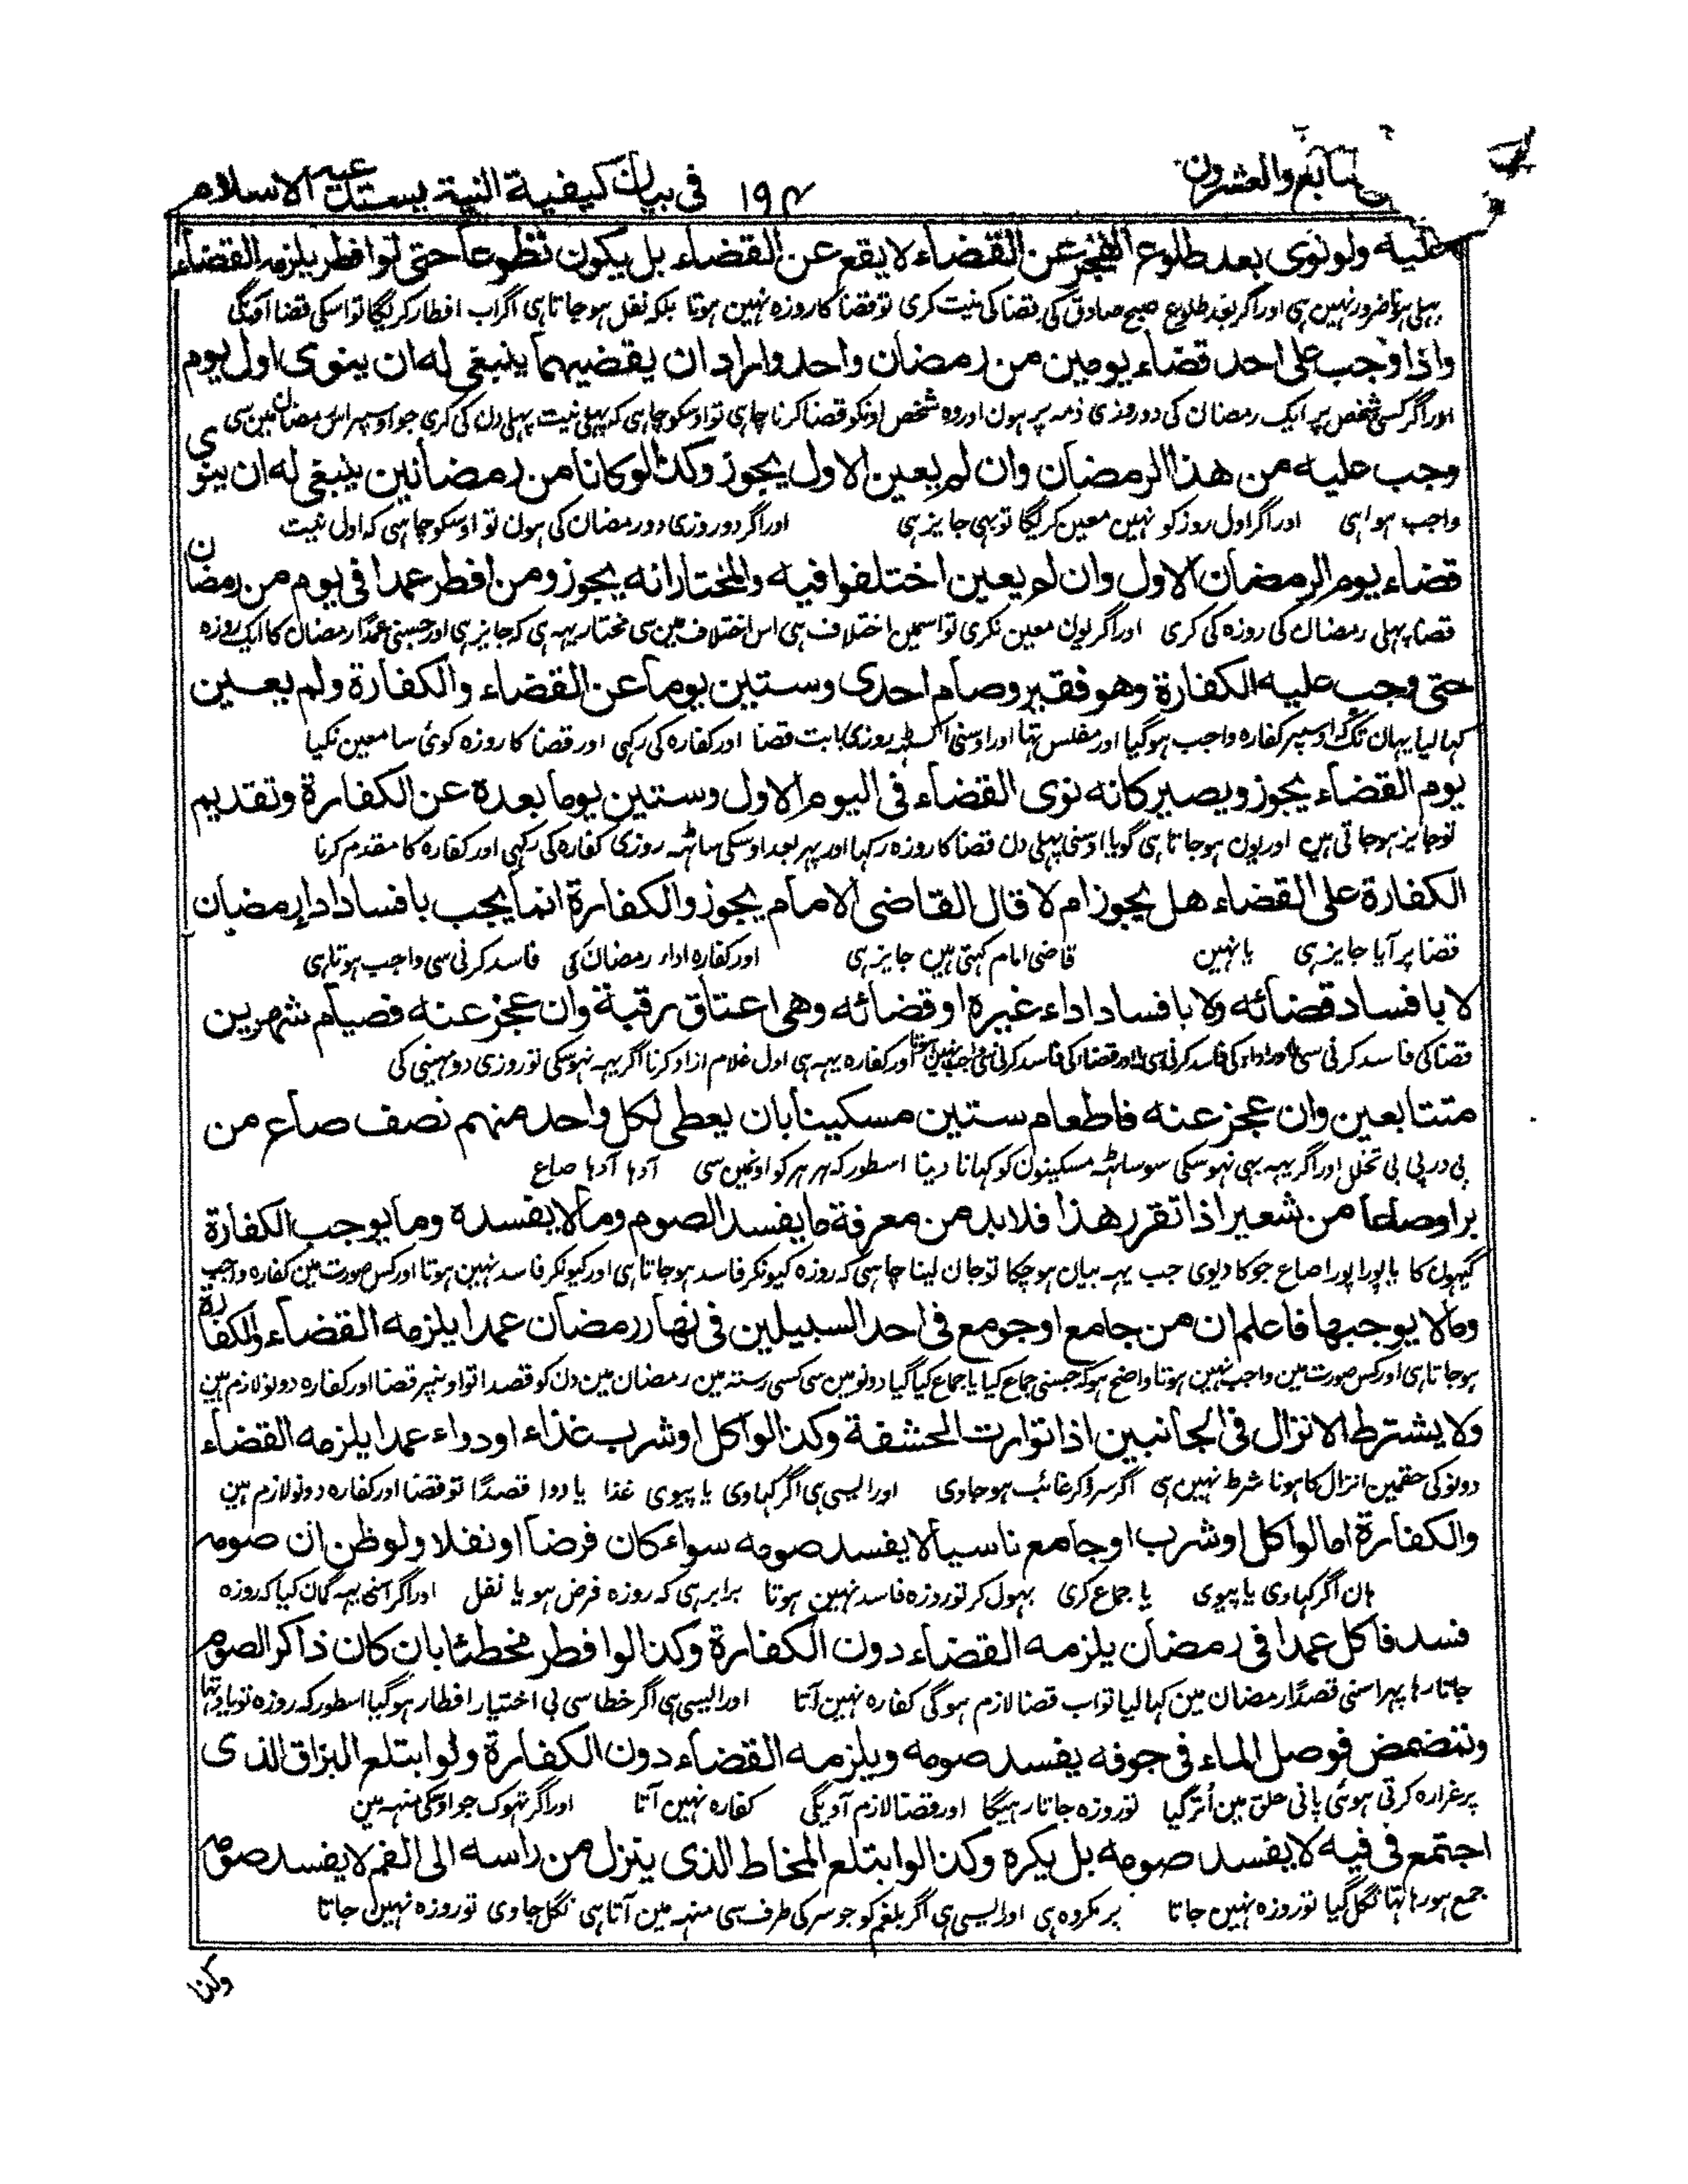 سابع والعشرون ۱۹۴ فى بيان كيفية النية بيستدعيه الاسلام
عليه ولو نوى بعد طلوع الفجر عن القضاء لا يقع عن القضاء بل يكون تطوعا حتى لو افطر يلزمه القضاء
پہلی ہونا ضرور نہین ہی اور اگر بعد طلوع صبح صادق کی قضا کی نیت کری تو قضا کا روزہ نہین ہوتا بلکہ نفل ہو جاتا ہی اگر اب افطار کریگا تو اسکی قضا آویگی
واذا وجب على احد قضاء يومين من رمضان واحد واراد ان يقضيهما ينبغى له ان ينوى اول يوم
اور اگر کسی شخص پر ایک رمضان کی دو روزی ذمہ پر ہون اور وہ شخص اونکو قضا کرنا چاہی تو اوسکو چاہی کہ پہلی نیت پہلی دن کی کری جو اوسپر اس رمضان مین سی
وجب عليه من هذا الرمضان وان لم يعين الاول يجوز وكذا لو كانا من رمضانين ينبغى له ان ينوى
واجب ہوا ہی اور اگر اول روز کو نہین معین کریگا تو بہی جایز ہی اور اگر دو روزی دو رمضان کی ہون تو اوسکو چاہی کہ اول نیت
قضاء يوم الرمضان الاول وان لم يعين اختلفوا فيه والمختار انه يجوز ومن افطر عمدا فى يوم من رمضان
قضا پہلی رمضان کی روزہ کی کری اور اگر یون معین نکری تو اسمین اختلاف ہی اس اختلاف مین سی مختار یہہ ہی کہ جایز ہی اور جسنی عمدًا رمضان کا ایک روزہ
حتى وجب عليه الكفارة وهو فقير وصام احدى وستين يوما عن القضاء والكفارة ولم يعين
کہا لیا یہان تک اوسپر کفارہ واجب ہوگیا اور مفلس تہا اور اوسنی اکسٹہہ روزی بابت قضا اور کفارہ کی رکہی اور قضا کا روزہ کوئی سا معین نکیا
يوم القضاء يجوز ويصير كانه نوى القضاء فى اليوم الاول وستين يوما بعده عن الكفارة وتقديم
تو جایز ہو جاتی ہین اور یون ہو جاتا ہی گویا اوسنی پہلی دن قضا کا روزہ رکہا اور پہر بعد اوسکی ساٹہہ روزی کفارہ کی رکہی اور کفارہ کا مقدم کرنا
الكفارة على القضاء هل يجوز ام لا قال القاضى الامام يجوز والكفارة انما يجب بافساد اداء رمضان
قضا پر آیا جایز ہی یا نہین قاضی امام کہتی ہین جایز ہی اور کفارہ اداء رمضان کی فاسد کرنی سی واجب ہوتا ہی
لا بافساد قضائه ولا بافساد اداء غيره او قضائه وهى اعتاق رقبة وان عجز عنه فصيام شهرين
قضا کی فاسد کرنی سی اور کفارہ یہہ ہی اول غلام ازاد کرنا اگر یہہ نہوسکی تو روزی دو مہینی کی
متتابعين وان عجز عنه فاطعام ستين مسكينا بان يعطى لكل واحد منهم نصف صاع من
پی در پی بی تخلل اور اگر یہہ بہی نہوسکی سو ساٹہہ مسکینون کو کہانا دینا اسطور کہ ہر ہر کو اونمین سی آدہا آدہا صاع
بر او صاعا من شعير اذا تقرر هذا فلابد من معرفة ما يفسد الصوم وما لا يفسده وما يوجب الكفارة
گیہون کا یا پورا پورا صاع جو کا دیوی جب یہہ بیان ہوچکا تو جان لینا چاہی کہ روزہ کیونکر فاسد ہو جاتا ہی اور کیونکر فاسد نہین ہوتا اور کس صورت مین کفارہ واجب
وما لا يوجبها فاعلم ان من جامع او جومع فى احد السبيلين فى نهار رمضان عمدا يلزمه القضاء والكفارة
ہو جاتا ہی اور کس صورت مین واجب نہین ہوتا واضح ہو کہ جسنی جماع کیا یا جماع کیا گیا دونو مین سی کسی رستہ مین رمضان مین دن کو قصدا تو اوسپر قضا اور کفارہ دونو لازم ہین
ولا يشترط الانزال فى الجانبين اذا توارت الحشفة وكذا لو اكل او شرب غذاء او دواء عمدا يلزمه القضاء
دونو کی حقمین انزال کا ہونا شرط نہین ہی اگر سر ذکر غائب ہو جاوی اور ایسی ہی اگر کہاوی یا پیوی غذا یا دوا قصدًا تو قضا اور کفارہ دونو لازم ہین
والكفارة اما لو اكل او شرب او جامع ناسيا لا يفسد صومه سواء كان فرضا او نفلا ولو ظن ان صومه
ہان اگر کہاوی یا پیوی یا جماع کری بہول کر تو روزہ فاسد نہین ہوتا برابر ہی کہ روزہ فرض ہو یا نفل اور اگر اسنی یہہ گمان کیا کہ روزہ
فسد فاكل عمدا فى رمضان يلزمه القضاء دون الكفارة وكذا لو افطر مخطئا بان كان ذاكر الصوم
جاتا رہا پہر اسنی قصدًا رمضان مین کہا لیا تو اب قضا لازم ہوگی کفارہ نہین آتا اور ایسی ہی اگر خطا سی بی اختیار افطار ہوگیا اسطور کہ روزہ تو یاد تہا
وتمضمض فوصل الماء فى جوفه يفسد صومه ويلزمه القضاء دون الكفارة ولو ابتلع البزاق الذى
پر غرارہ کرتی ہوئی پانی حلق مین اُتر گیا تو روزہ جاتا رہیگا اور قضا لازم آویگی کفارہ نہین آتا اور اگر تہوک جو اوسکی منہہ مین
اجتمع فى فيه لا يفسد صومه بل يكره وكذا لو ابتلع المخاط الذى ينزل من راسه الى الفم لا يفسد صومه
جمع ہو رہا تہا نگل گیا تو روزہ نہین جاتا پر مکروہ ہی اور ایسی ہی اگر بلغم کو جو سر کی طرف سی منہہ مین آتا ہی نگل جاوی تو روزہ نہین جاتا
وكذا